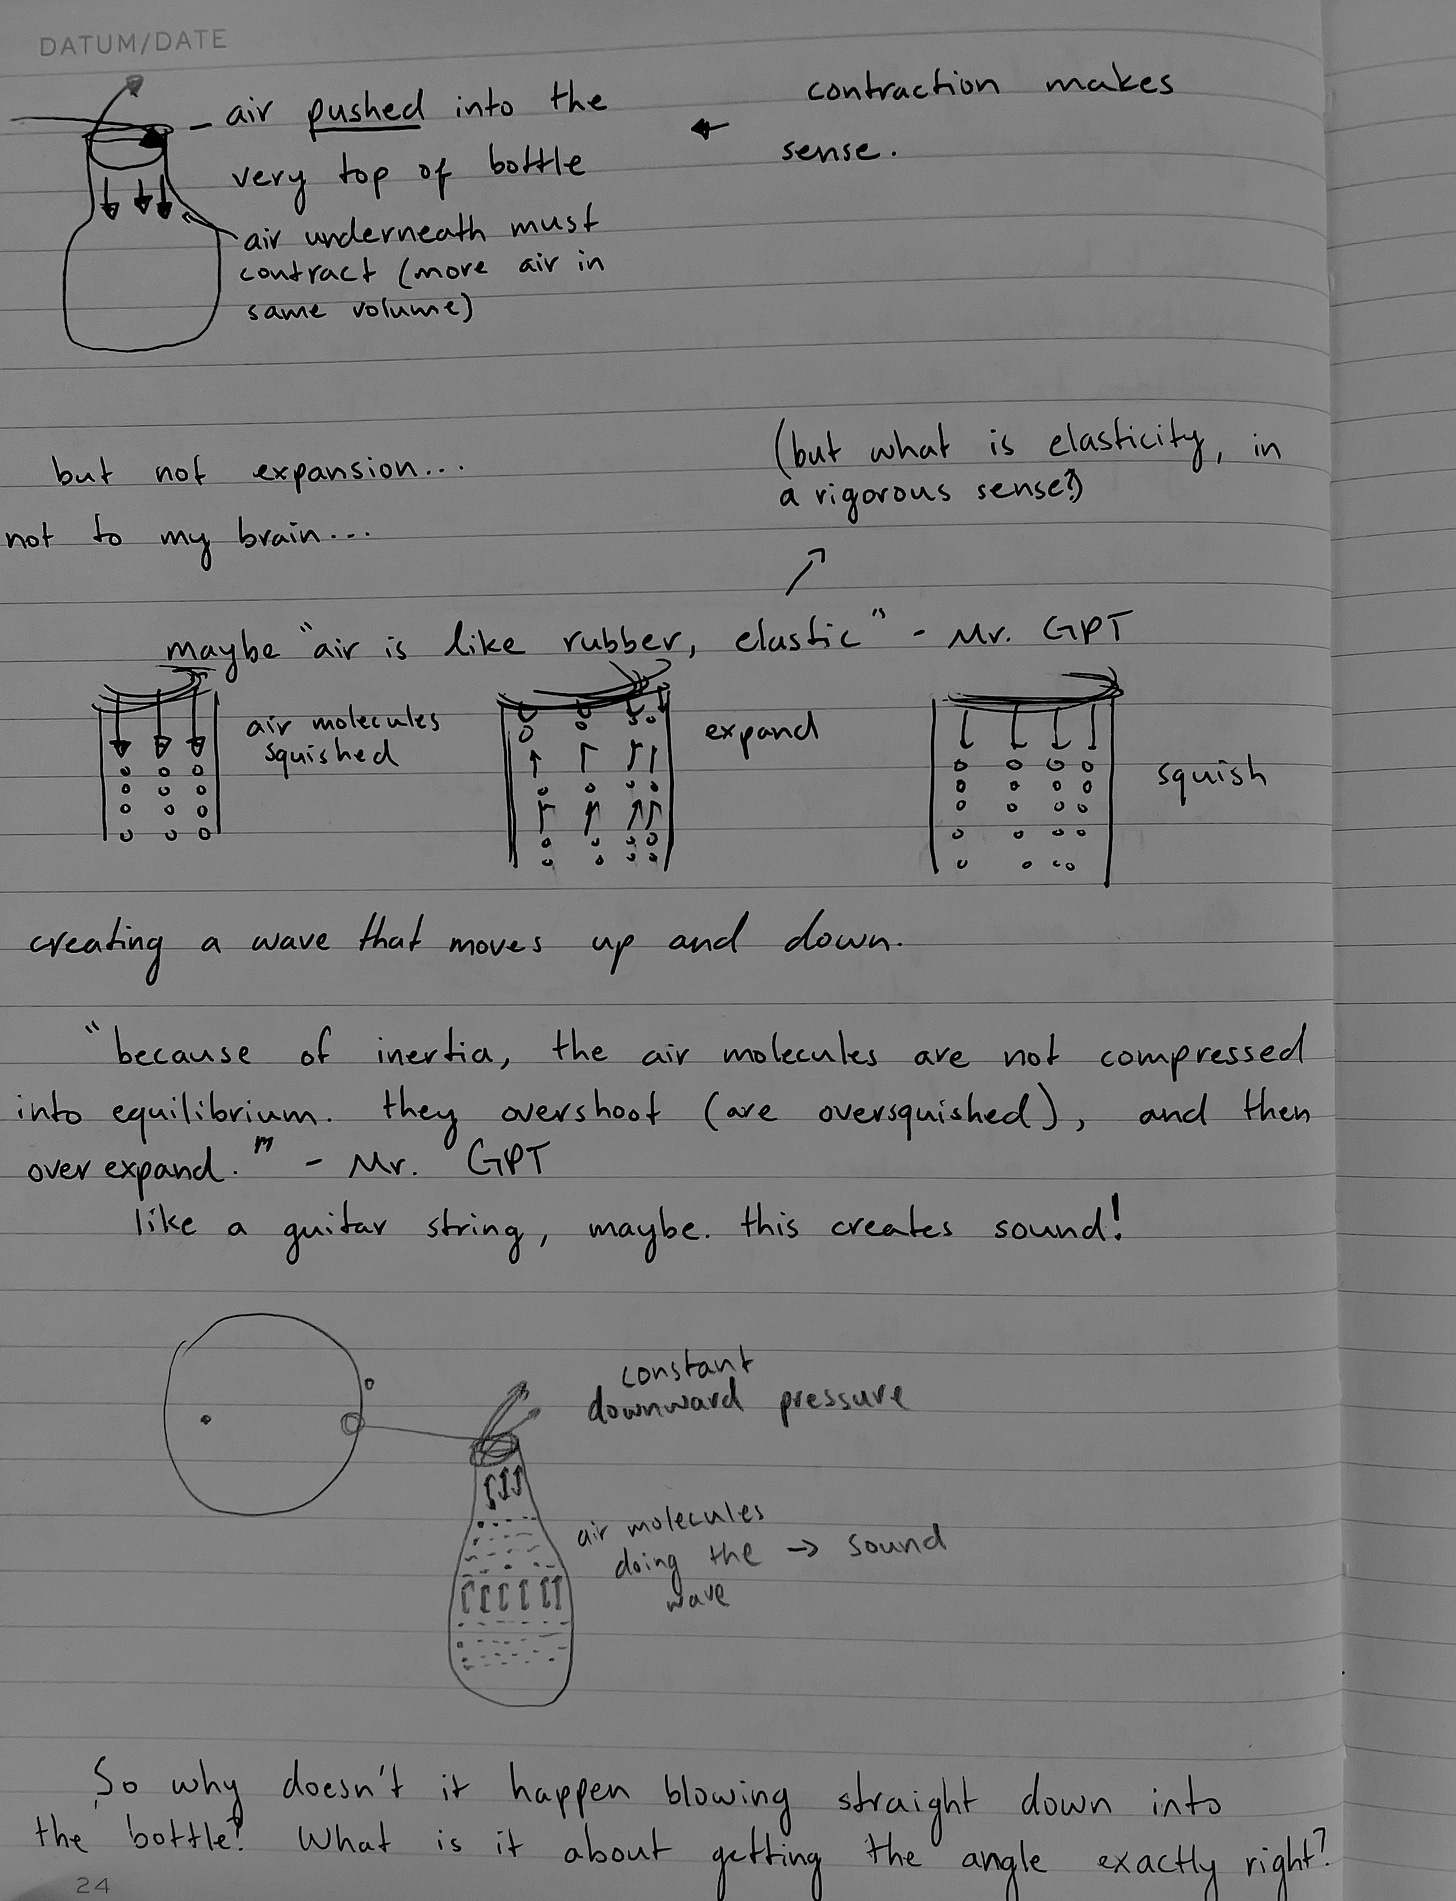 DATUM/DATE
air pushed into the
very top of bottle
air underneath must
contract (more air in
same volume)
contraction makes
sense.
but not expansion...
not to my brain...
(but what is elasticity, in
a rigorous sense?)
maybe "air is like rubber, elastic" - Mr. GPT
air molecules
squished
expand
squish
creating a wave that moves up and down.
"because of inertia, the air molecules are not compressed
into equilibrium. they overshoot (are oversquished), and then
over expand." - Mr. GPT
like a guitar string, maybe. this creates sound!
constant
downward pressure
air molecules
doing the → sound
wave
So why doesn't it happen blowing straight down into
the bottle? What is it about getting the angle exactly right?
24